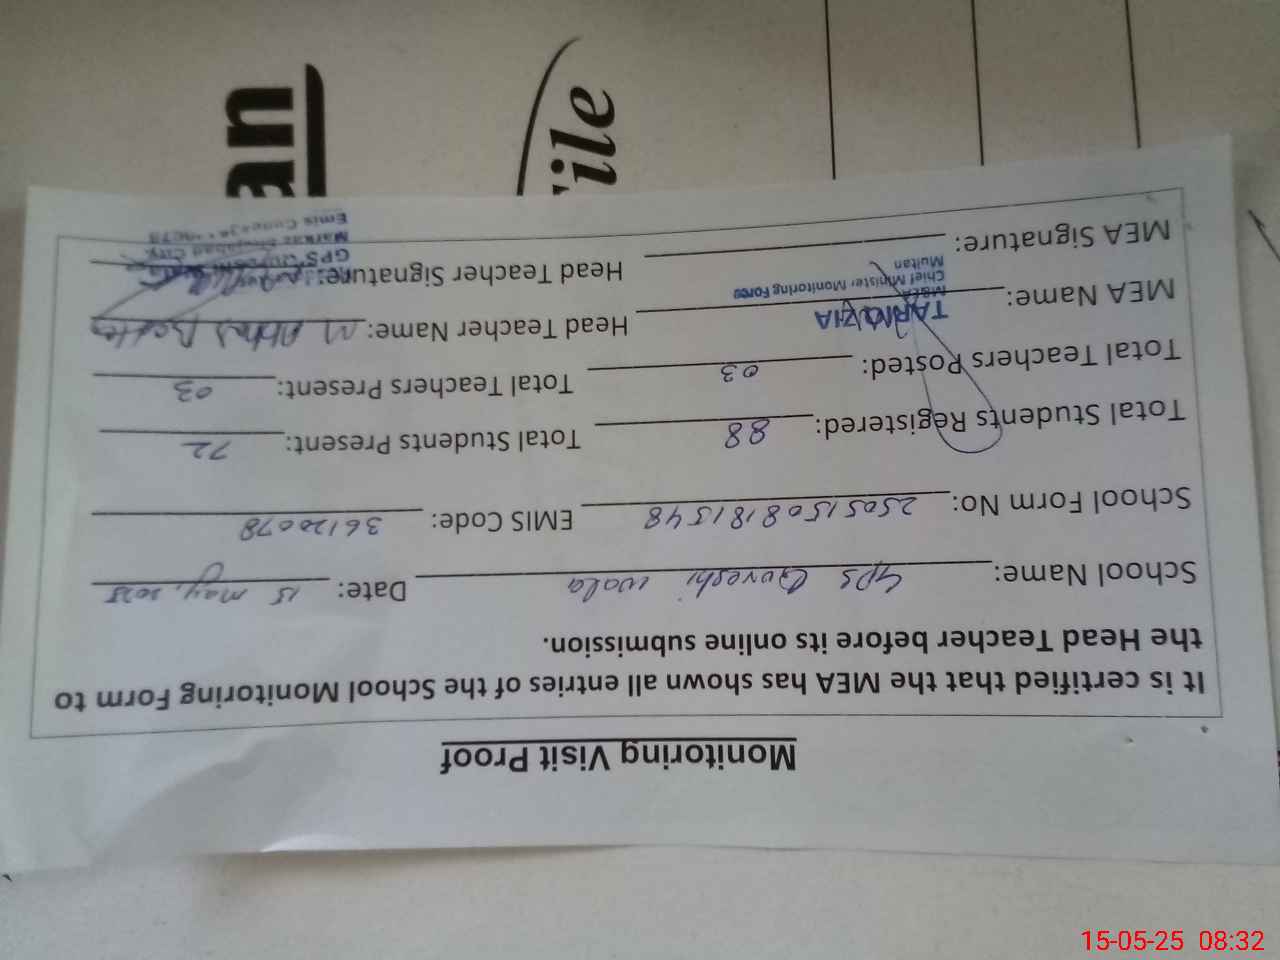 Monitoring Visit Proof
It is certified that the MEA has shown all entries of the School Monitoring Form to
the Head Teacher before its online submission.
School Name: GPS Qureshi wala Date: 15 may, 2025
School Form No: 25051508181548 EMIS Code: 36120078
Total Students Registered: 88 Total Students Present: 72
Total Teachers Posted: 03 Total Teachers Present: 03
MEA Name: Head Teacher Name: M Abbas
MEA Signature: Head Teacher Signature:
Chief Minister Monitoring Force
Multan
GPS
Markaz City
Emis Code
an
File
15-05-25 08:32